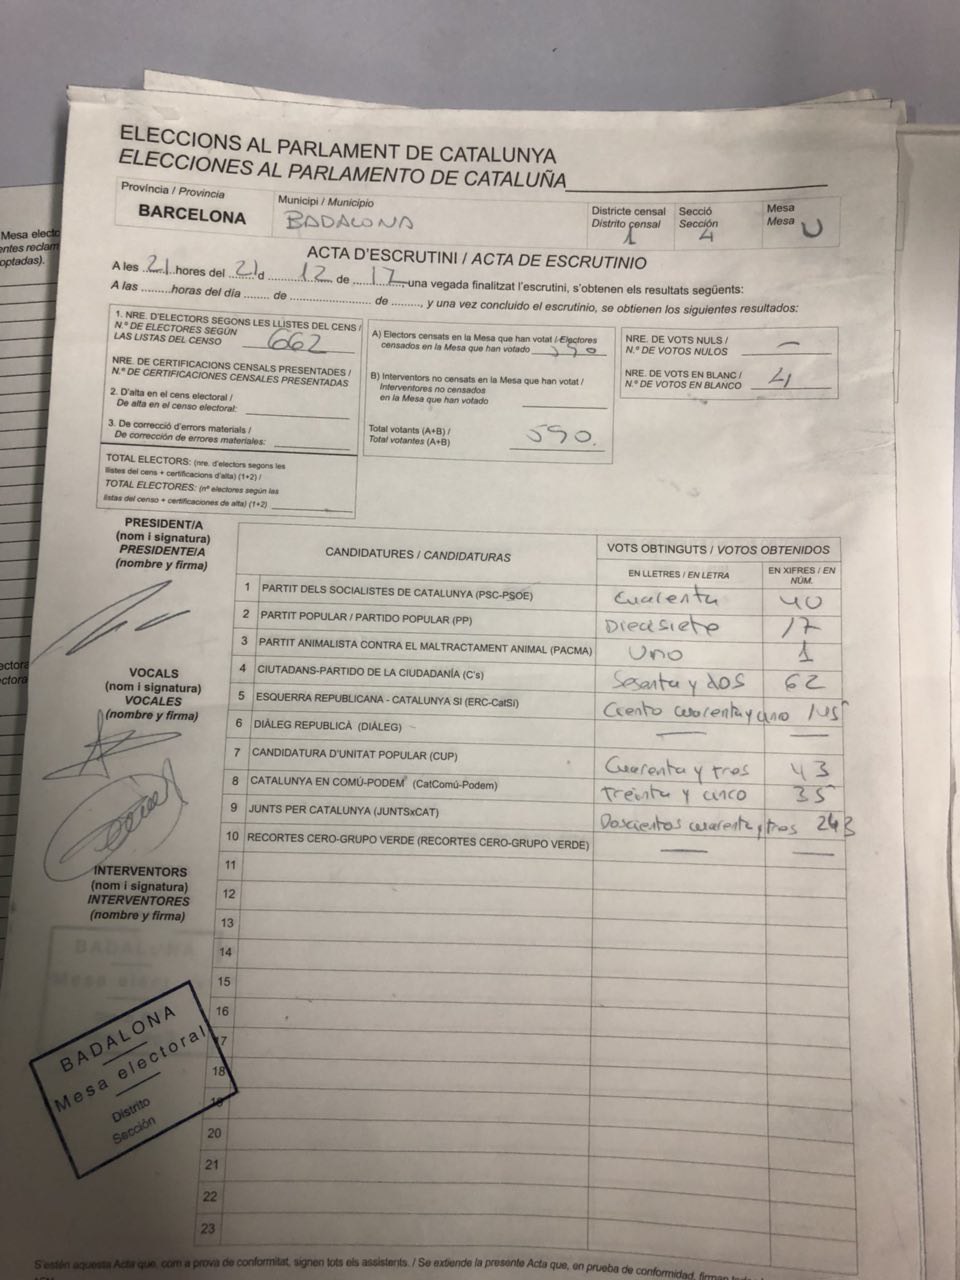 ELECCIONS AL PARLAMENT DE CATALUNYA
ELECCIONES AL PARLAMENTO DE CATALUÑA
Província / Provincia
BARCELONA
Municipi / Municipio
BADALONA
Districte censal
Distrito censal
1
Secció
Sección
4
Mesa
Mesa U
Mesa electo
entes reclam
optadas).
ACTA D'ESCRUTINI / ACTA DE ESCRUTINIO
A les 21 hores del 21 d 12 de 17, una vegada finalitzat l'escrutini, s'obtenen els resultats següents:
A las ......... horas del día ....... de .................... de ........, y una vez concluido el escrutinio, se obtienen los siguientes resultados:
1. NRE. D'ELECTORS SEGONS LES LLISTES DEL CENS /
N.º DE ELECTORES SEGÚN
LAS LISTAS DEL CENSO 662
NRE. DE CERTIFICACIONS CENSALS PRESENTADES /
N.º DE CERTIFICACIONES CENSALES PRESENTADAS
2. D'alta en el cens electoral /
De alta en el censo electoral:
3. De correcció d'errors materials /
De corrección de errores materiales:
TOTAL ELECTORS: (nre. d'electors segons les
llistes del cens + certificacions d'alta) (1+2) /
TOTAL ELECTORES: (nº electores según las
listas del censo + certificaciones de alta) (1+2)
A) Electors censats en la Mesa que han votat / Electores
censados en la Mesa que han votado 590
B) Interventors no censats en la Mesa que han votat /
Interventores no censados
en la Mesa que han votado
Total votants (A+B) /
Total votantes (A+B) 590.
NRE. DE VOTS NULS /
N.º DE VOTOS NULOS —
NRE. DE VOTS EN BLANC /
N.º DE VOTOS EN BLANCO 4
PRESIDENT/A
(nom i signatura)
PRESIDENTE/A
(nombre y firma)
VOCALS
(nom i signatura)
VOCALES
(nombre y firma)
INTERVENTORS
(nom i signatura)
INTERVENTORES
(nombre y firma)
CANDIDATURES / CANDIDATURAS
VOTS OBTINGUTS / VOTOS OBTENIDOS
EN LLETRES / EN LETRA
EN XIFRES / EN NÚM.
1 PARTIT DELS SOCIALISTES DE CATALUNYA (PSC-PSOE) Cuarenta 40
2 PARTIT POPULAR / PARTIDO POPULAR (PP) Diecisiete 17
3 PARTIT ANIMALISTA CONTRA EL MALTRACTAMENT ANIMAL (PACMA) Uno 1
4 CIUTADANS-PARTIDO DE LA CIUDADANÍA (C's) Sesenta y dos 62
5 ESQUERRA REPUBLICANA - CATALUNYA SI (ERC-CatSí) Ciento cuarenta y uno 145
6 DIÀLEG REPUBLICÀ (DIÀLEG) — —
7 CANDIDATURA D'UNITAT POPULAR (CUP) Cuarenta y tres 43
8 CATALUNYA EN COMÚ-PODEM (CatComú-Podem) Treinta y cinco 35
9 JUNTS PER CATALUNYA (JUNTSxCAT) Doscientos cuarenta y tres 243
10 RECORTES CERO-GRUPO VERDE (RECORTES CERO-GRUPO VERDE) — —
11
12
13
14
15
16
17
18
19
20
21
22
23
BADALONA
Mesa electoral
Distrito
Sección
S'estén aquesta Acta que, com a prova de conformitat, signen tots els assistents. / Se extiende la presente Acta que, en prueba de conformidad, firman